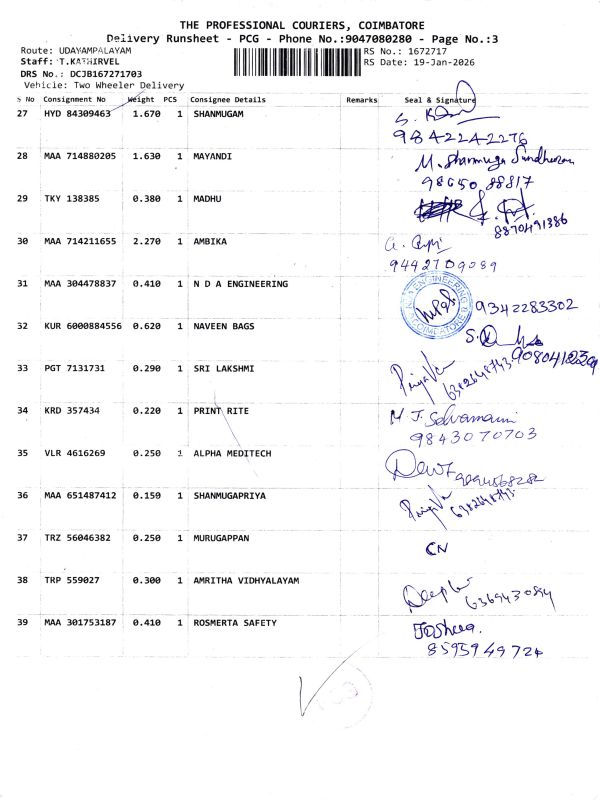 THE PROFESSIONAL COURIERS, COIMBATORE
Delivery Runsheet - PCG - Phone No.:9047080280 - Page No.:3
Route: UDAYAMPALAYAM
RS No.: 1672717
Staff: T.KATHIRVEL
RS Date: 19-Jan-2026
DRS No.: DCJB167271703
Vehicle: Two Wheeler Delivery
S No Consignment No Weight PCS Consignee Details Remarks Seal & Signature
27 HYD 84309463 1.670 1 SHANMUGAM
9842242276
28 MAA 714880205 1.630 1 MAYANDI M. Shanmuga Sundharam
98650 88817
29 TKY 138385 0.380 1 MADHU
8870491386
30 MAA 714211655 2.270 1 AMBIKA
9442709089
31 MAA 304478837 0.410 1 N D A ENGINEERING 9342283302
32 KUR 6000884556 0.620 1 NAVEEN BAGS
33 PGT 7131731 0.290 1 SRI LAKSHMI
6382648743
34 KRD 357434 0.220 1 PRINT RITE M J. Selvamani
9843070703
35 VLR 4616269 0.250 1 ALPHA MEDITECH
36 MAA 651487412 0.150 1 SHANMUGAPRIYA
6382648743
37 TRZ 56046382 0.250 1 MURUGAPPAN CN
38 TRP 559027 0.300 1 AMRITHA VIDHYALAYAM
39 MAA 301753187 0.410 1 ROSMERTA SAFETY
8595949724